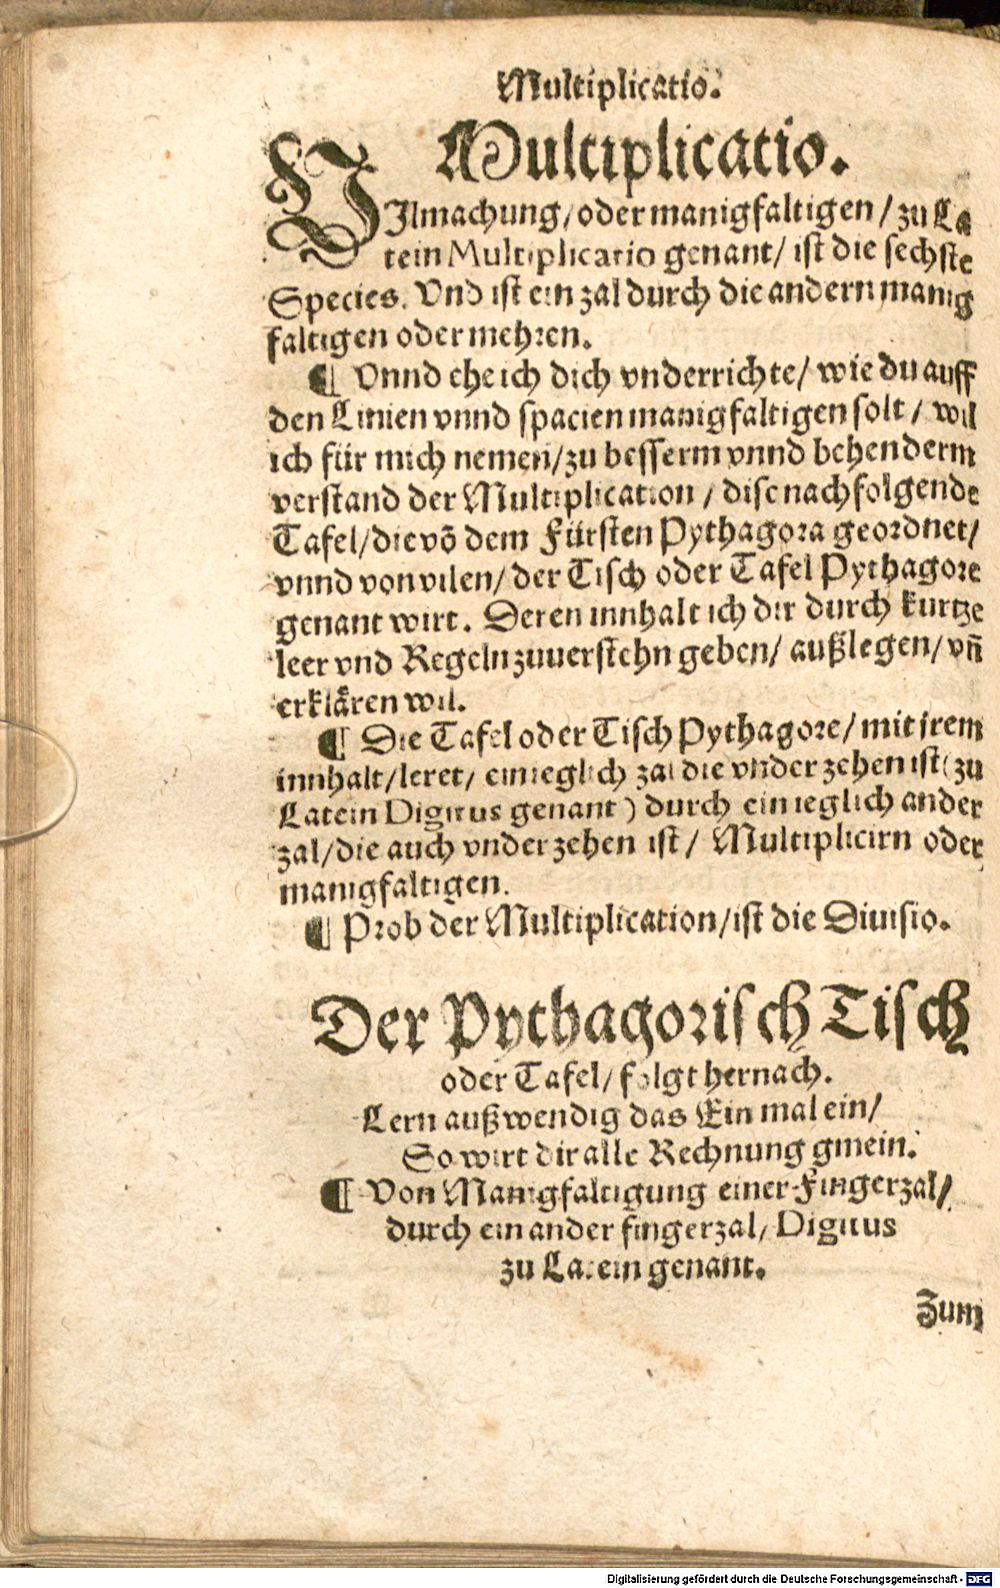 Multiplicatio.
Multiplicatio.
VIlmachung/oder manigfaltigen/zu La
tein Multiplicatio genant/ist die sechste
Species. Vnd ist ein zal durch die andern manig
faltigen oder mehren.
¶ Vnnd ehe ich dich vnderrichte/wie du auff
den Linien vnnd spacien manigfaltigen solt/wil
ich für mich nemen/zu besserm vnnd behenderm
verstand der Multiplication/dise nachfolgende
Tafel/die võ dem Fürsten Pythagora geordnet/
vnnd von vilen/der Tisch oder Tafel Pythagore
genant wirt. Deren innhalt ich dir durch kurtze
leer vnd Regeln zuuerstehn geben/außlegen/vñ
erklären wil.
¶ Die Tafel oder Tisch Pythagore/mit jrem
innhalt/leret/ein ieglich zal die vnder zehen ist(zu
Latein Digitus genant) durch ein ieglich ander
zal/die auch vnder zehen ist/Multiplicirn oder
manigfaltigen.
¶ Prob der Multiplication/ist die Diuisio.
Der Pythagorisch Tisch
oder Tafel/folgt hernach.
Lern außwendig das Ein mal ein/
So wirt dir alle Rechnung gmein.
¶ Von Manigfaltigung einer Fingerzal/
durch ein ander fingerzal/Digitus
zu Latein genant.
Zum
Digitalisierung gefördert durch die Deutsche Forschungsgemeinschaft - DFG